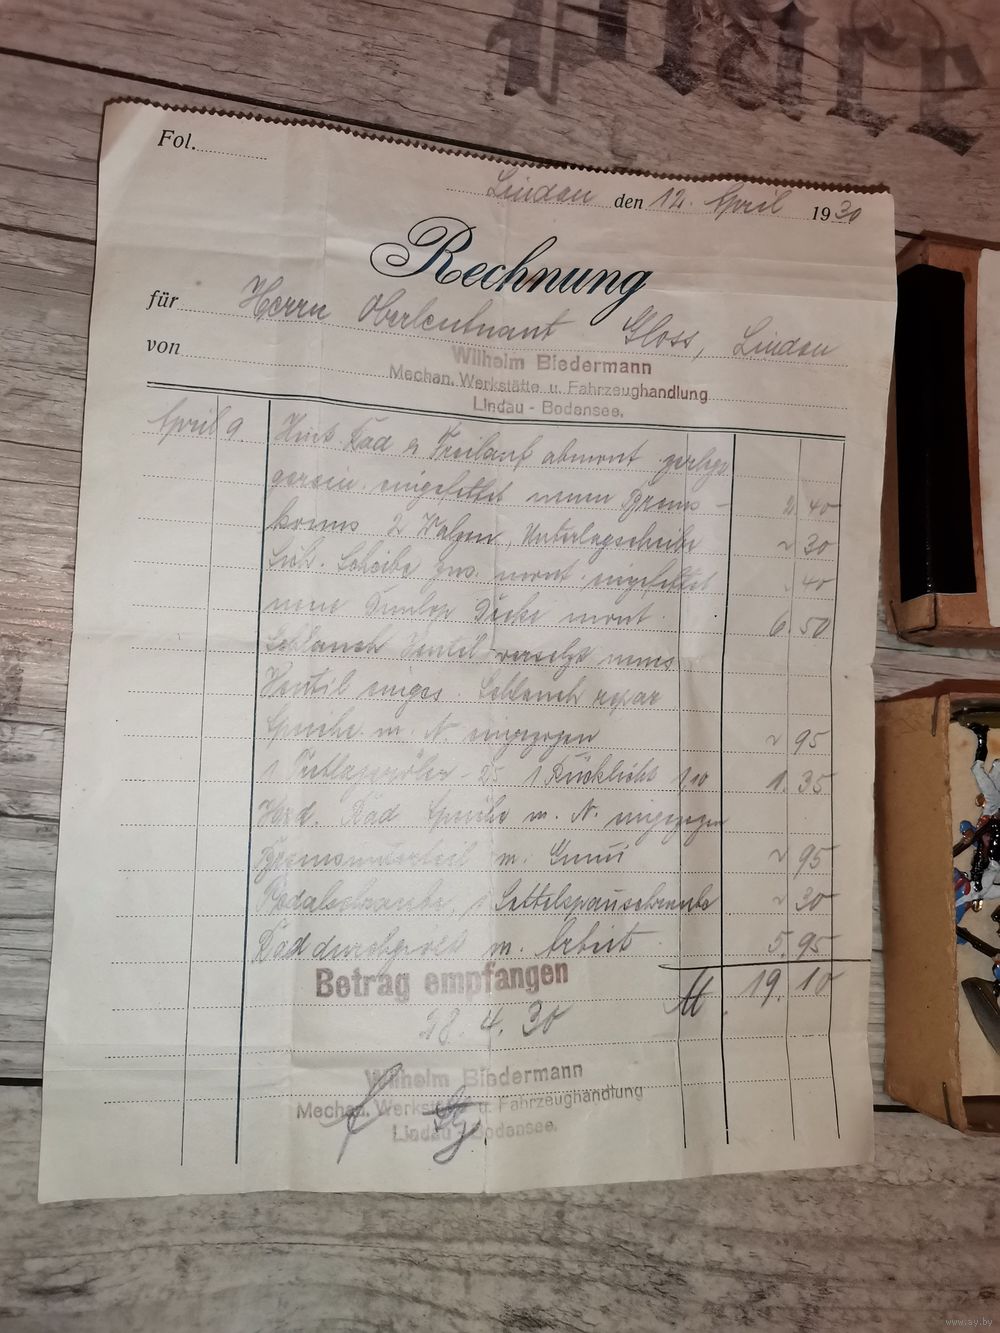 Fol.
Lindau den 12. April 1930
Rechnung
für Herrn Oberleutnant Gloss, Lindau
von Wilhelm Biedermann
Mechan. Werkstätte u. Fahrzeughandlung
Lindau - Bodensee.
April 9. Hint. Rad u. Freilauf abmont. zerlegt
gerein. eingefettet neuen Brems -
2 40
konus 2 Walzen, Unterlagscheibe
30
Scheibe mont. eingefettet
40
neue Dunlop Decke mont.
6. 50
Schlauch Ventil versetzt neues
Ventil Schlauch repar
Speiche m. N eingezogen
95
1 25 1 Rücklicht 1.10
1. 35
Rad Speiche m. N. eingezogen
m. Gummi
95
1 Sattelspannschraube
30
Rad durchgeölt m. Arbeit
5. 95
M. 19. 10
Betrag empfangen
28. 4. 30
Wilhelm Biedermann
Mechan. Werkstätte u. Fahrzeughandlung
Lindau - Bodensee.
www.ay.by